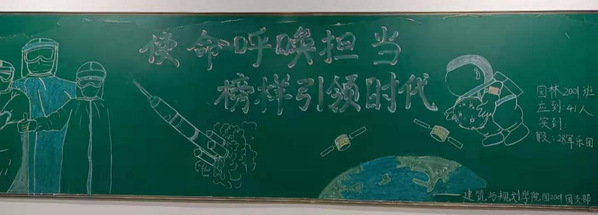 使命呼唤担当
榜样引领时代
园林2001班
应到:41人
实到:
建筑与规划学院园2001团支部